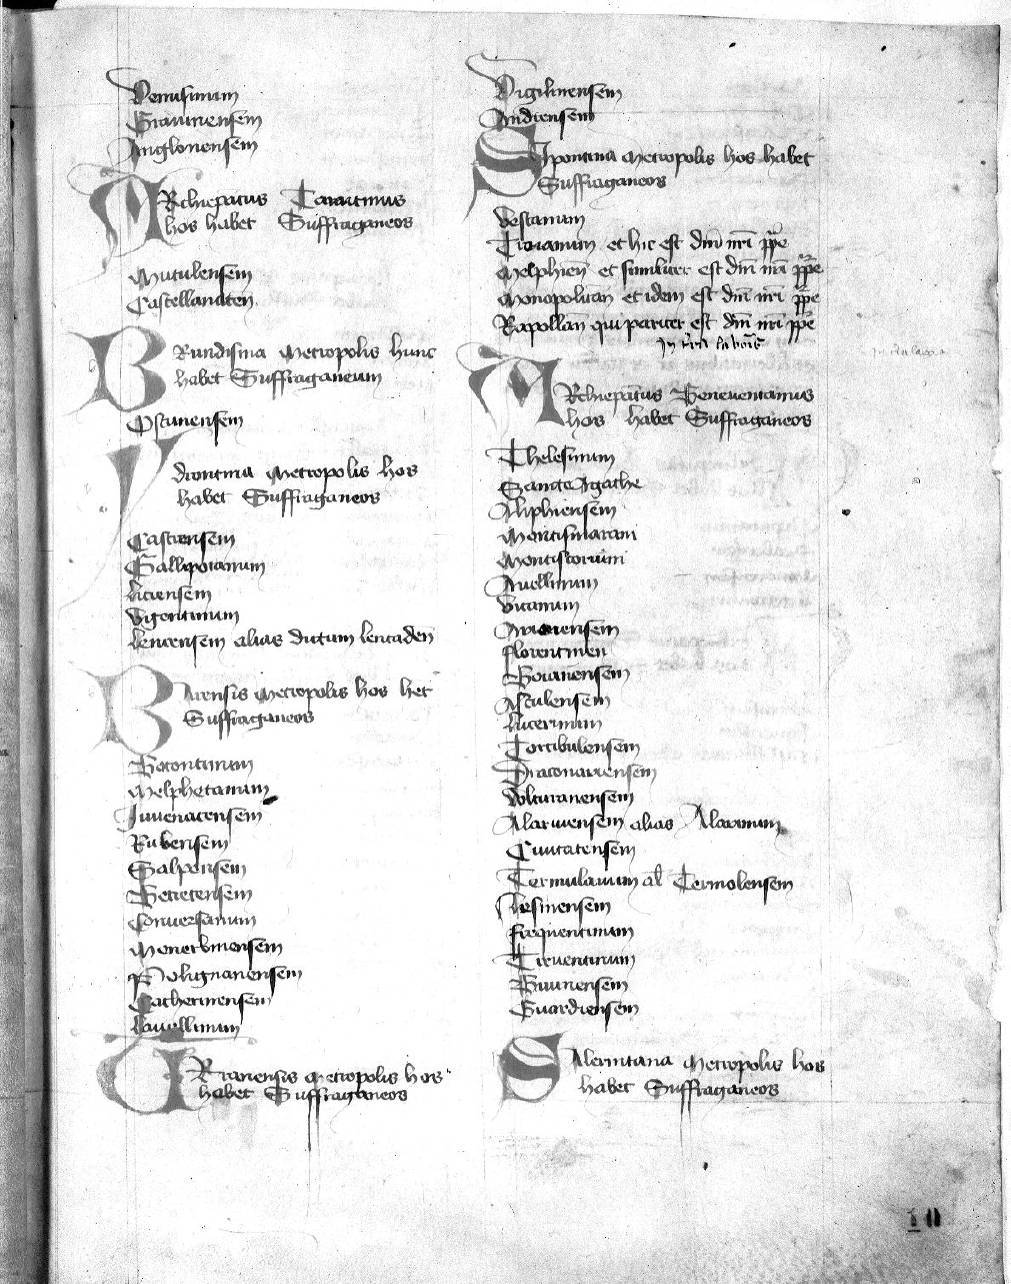 Venusinum
Gravinensem
Anglonensem
ARchiepatus Tarantinus
hos habet Suffraganeos
Mutulensem
Castellanaten
BRundisina Metropolis hunc
habet Suffraganeum
Ostunensem
Ydrontina Metropolis hos
habet Suffraganeos
Castrensem
Gallipolanum
Liciensem
Ugentinum
Leucensem alias dictum Leucaden
BArensis Metropolis hos het
Suffraganeos
Botontinum
Melphetanum
Juvenacensem
Rubensem
Salpensem
Betretensem
Conversanum
Monerbinensem
Polignanensem
Catherinensem
Lavellinum
TRanensis Metropolis hos
habet Suffraganeos
Vigilinensem
Andrensem
SIpontina Metropolis hos habet
Suffraganeos
Vestanum
Troianum et hic est dni nri ppe
Melphien et similiter est dni nri ppe
Monopolitan et idem est dni nri ppe
Rapollan qui pariter est dni nri ppe
In terra laboris
ARchiepatus Beneventanus
hos habet Suffraganeos
Thelesinum
Sancte Agathe
Aliphiensem
Montismarani
Montiscorvini
Avellinum
Vicanum
Arianensem
florentinen
Boianensem
Asculensem
Lucerinum
Tortibulensem
Draconariensem
Vulturanensem
Alarinensem alias Alarinum
Civitatensem
Termulanum al Termolensem
Lesinensem
frequentinum
Triventinum
Bivinensem
Guardiensem
SAlernitana Metropolis hos
habet Suffraganeos
10